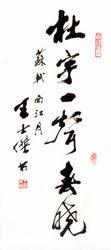 杜宇一聲春曉
蘇軾西江月
王士傑書